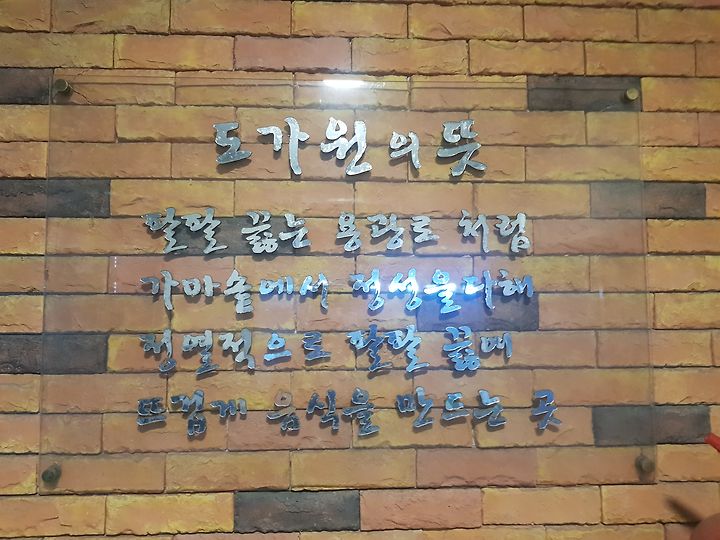 도가원의 뜻
팔팔 끓는 용광로 처럼
가마솥에서 정성을다해
정열적으로 팔팔 끓여
뜨겁게 음식을 만드는 곳